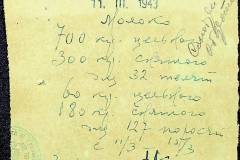 11. III. 1943
Молоко
700 кр. цельного
300 кр. снятого
для 32 телят
60 кр. цельного
180 кр. снятого
для 127 поросят
с 11/3 - 15/3